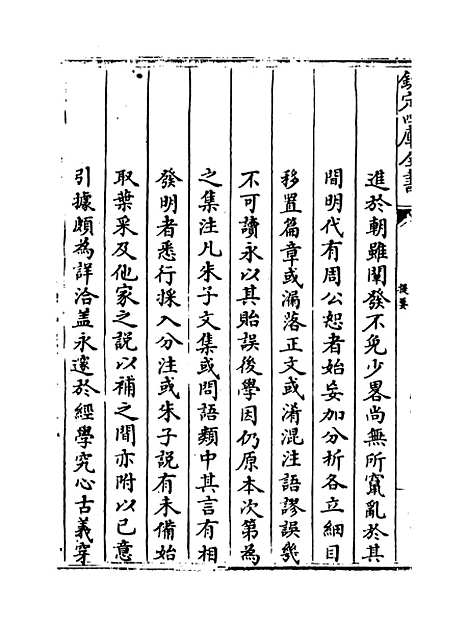 欽定四庫全書
提要
進於朝雖闡發不免少畧尚無所竄亂於其
間明代有周公恕者始妄加分析各立細目
移置篇章或漏落正文或淆混注語謬誤幾
不可讀永以其貽誤後學因仍原本次第為
之集注凡朱子文集或問語類中其言有相
發明者悉行採入分注或朱子說有未備始
取葉采及他家之說以補之間亦附以已意
引據頗為詳洽盖永邃於經學究心古義穿